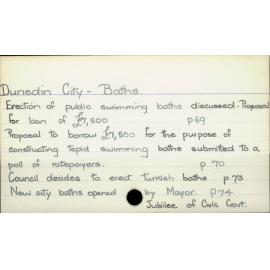 Dunedin City - Baths.
Erection of public swimming baths discussed. Proposal
for loan of £7,500 p69
Proposal to borrow £7,500 for the purpose of
constructing tepid swimming baths submitted to a
poll of ratepayers. p 70
Council decides to erect turkish baths p 73
New city baths opened by Mayor. p74
Jubilee of Civic Govt.